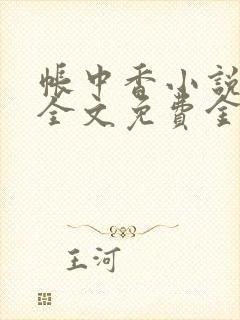 帐中香小説
全文免費全
王河